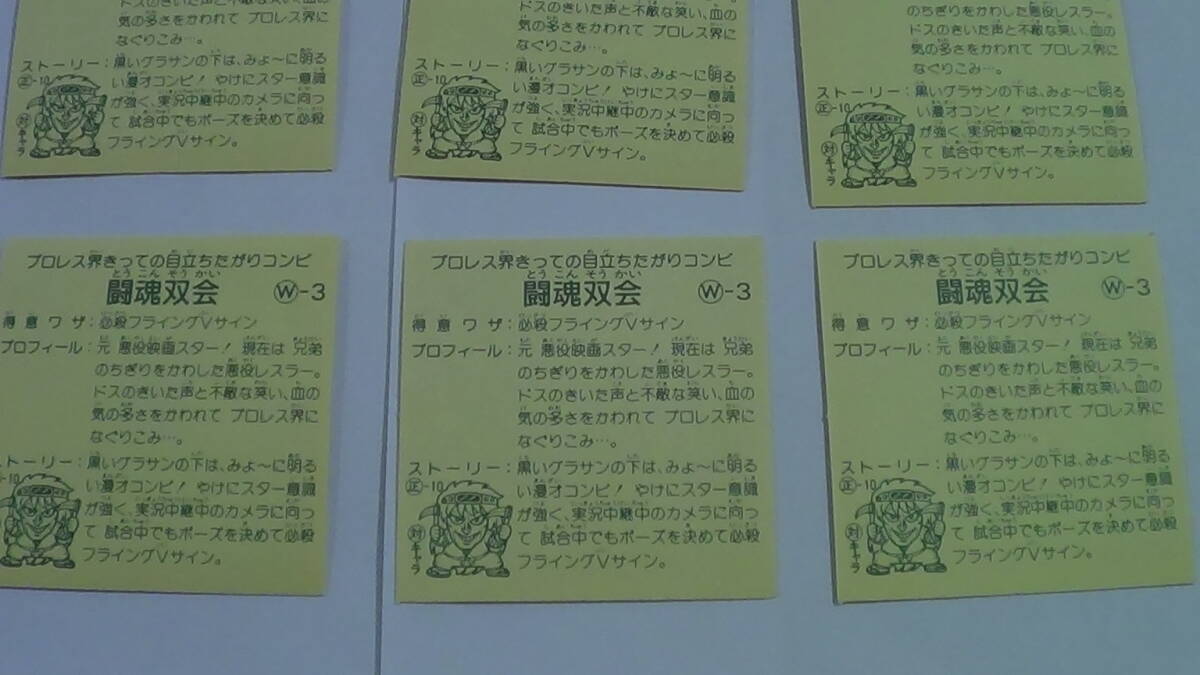 ドスのきいた声と不敵な笑い、血の
気の多さをかわれて プロレス界に
なぐりこみ…。
ストーリー：黒いグラサンの下は、みょ〜に明る
正-10 い漫才コンビ！ やけにスター意識
が強く、実況中継中のカメラに向っ
対キャラ て 試合中でもポーズを決めて必殺
フライングVサイン。
気の多さをかわれて プロレス界に
なぐりこみ…。
ストーリー：黒いグラサンの下は、みょ〜に明る
正-10 い漫才コンビ！ やけにスター意識
が強く、実況中継中のカメラに向っ
対キャラ て 試合中でもポーズを決めて必殺
フライングVサイン。
のちぎりをかわした悪役レスラー。
ドスのきいた声と不敵な笑い、血の
気の多さをかわれて プロレス界に
なぐりこみ…。
ストーリー：黒いグラサンの下は、みょ〜に明る
正-10 い漫才コンビ！ やけにスター意識
が強く、実況中継中のカメラに向っ
対キャラ て 試合中でもポーズを決めて必殺
フライングVサイン。
プロレス界きっての目立ちたがりコンビ
とう こん そう かい
闘魂双会 W-3
得意ワザ：必殺フライングVサイン
プロフィール：元 悪役映画スター！ 現在は 兄弟
のちぎりをかわした悪役レスラー。
ドスのきいた声と不敵な笑い、血の
気の多さをかわれて プロレス界に
なぐりこみ…。
トーリー：黒いグラサンの下は、みょ〜に明る
-10 い漫才コンビ！ やけにスター意識
が強く、実況中継中のカメラに向っ
対キャラ て 試合中でもポーズを決めて必殺
フライングVサイン。
プロレス界きっての目立ちたがりコンビ
とう こん そう かい
闘魂双会 W-3
得意ワザ：必殺フライングVサイン
プロフィール：元 悪役映画スター！ 現在は 兄弟
のちぎりをかわした悪役レスラー。
ドスのきいた声と不敵な笑い、血の
気の多さをかわれて プロレス界に
なぐりこみ…。
ストーリー：黒いグラサンの下は、みょ〜に明る
正-10 い漫才コンビ！ やけにスター意識
が強く、実況中継中のカメラに向っ
対キャラ て 試合中でもポーズを決めて必殺
フライングVサイン。
プロレス界きっての目立ちたがりコンビ
とう こん そう かい
闘魂双会 W-3
得意ワザ：必殺フライングVサイン
プロフィール：元 悪役映画スター！ 現在は 兄弟
のちぎりをかわした悪役レスラー。
ドスのきいた声と不敵な笑い、血の
気の多さをかわれて プロレス界に
なぐりこみ…。
ストーリー：黒いグラサンの下は、みょ〜に明る
正-10 い漫才コンビ！ やけにスター意識
が強く、実況中継中のカメラに向っ
対キャラ て 試合中でもポーズを決めて必殺
フライングVサイン。